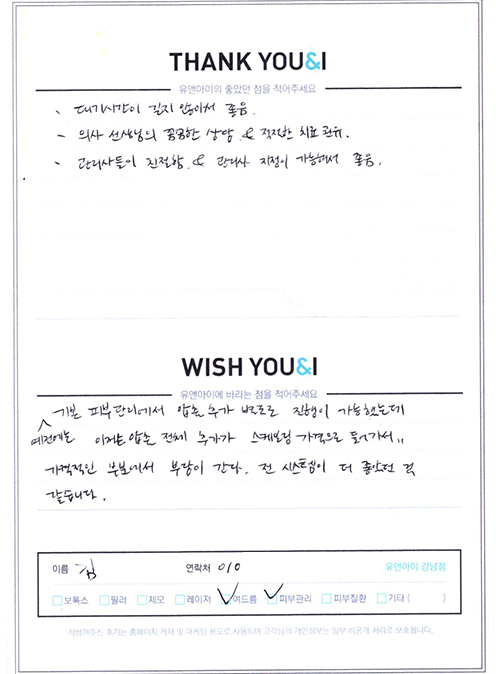 THANK YOU&I
유앤아이의 좋았던 점을 적어주세요
- 대기시간이 길지 않아서 좋음.
- 의사 선생님의 꼼꼼한 상담 & 적절한 치료 권유.
- 관리사들이 친절함. & 관리사 지정이 가능해서 좋음.
WISH YOU&I
유앤아이에 바라는 점을 적어주세요
기본 피부관리에서 압출 추가 별도로 진행이 가능했는데
예전에는 이제는 압출 전체 추가가 스케일링 가격으로 들어가서,,
가격적인 부분에서 부담이 간다. 전 시스템이 더 좋았던 것
같습니다.
이름 김 연락처 010 유앤아이 강남점
보톡스 필러 제모 레이저 여드름 피부관리 피부질환 기타 ( )
작성해주신 후기는 홈페이지 게재 및 마케팅 용도로 사용되며 고객님의 개인정보는 일부 비공개 처리로 보호됩니다.